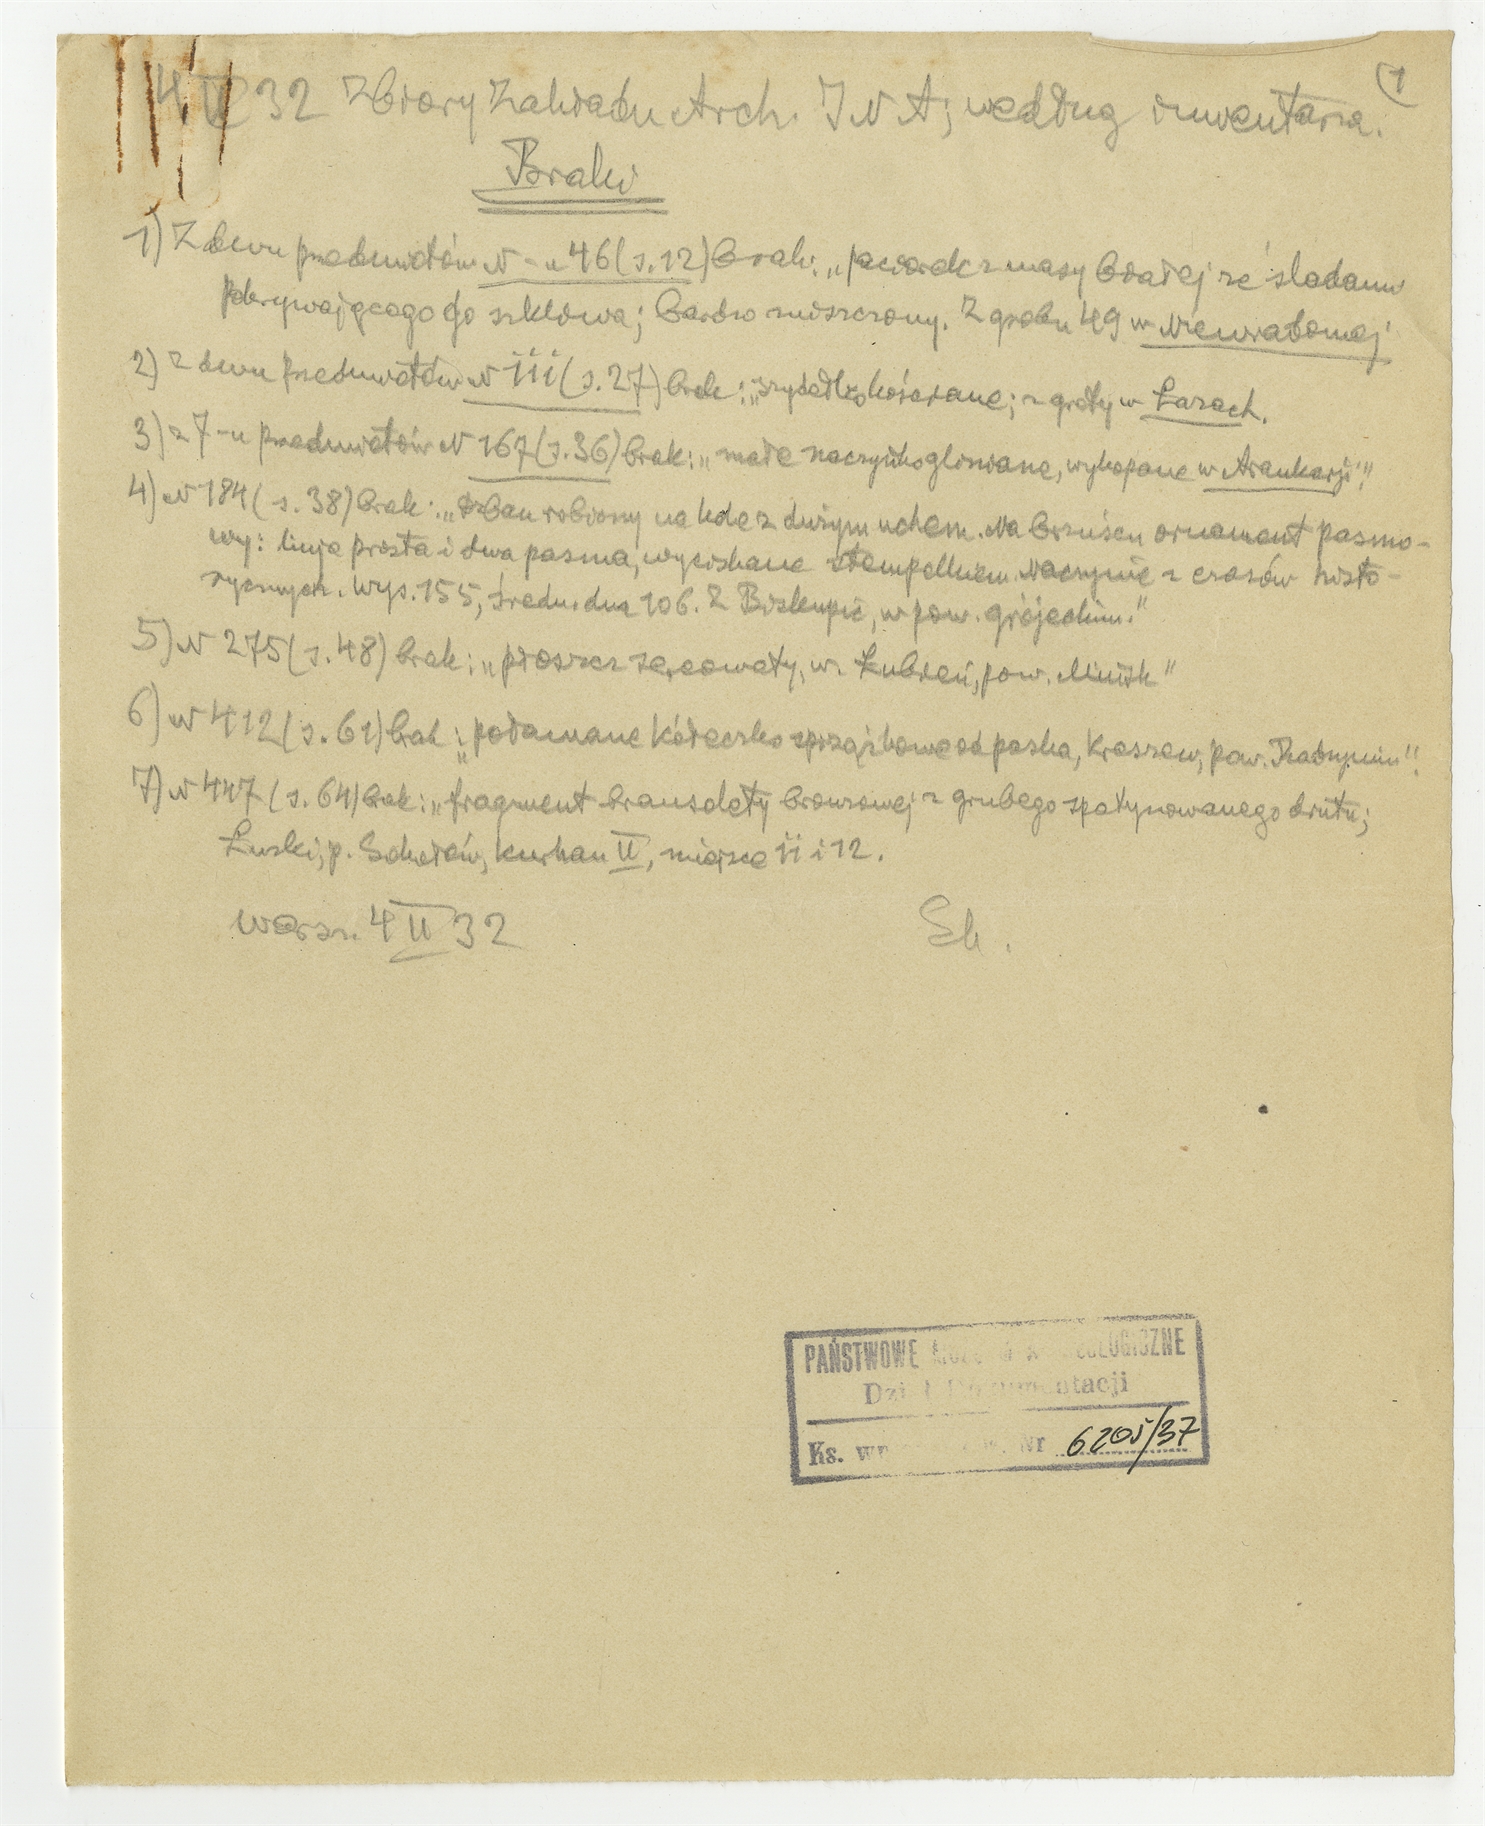 1
4 II 32 Zbiory Zakładu Arch. I N A; według inwentarza.
Braki
1) Z dwu przedmiotów N-u 46 (s. 12) brak: „paciorek z masy białej ze śladami
pokrywającego go szkliwa; bardzo zniszczony. Z grobu 49 w Niewiadomej
2) z dwu przedmiotów N 111 (s. 27) brak: „szydełko kościane; z groty w Łazach.
3) z 7-u przedmiotów N 167 (s. 36) brak: „małe naczyńko gliniane, wykopane w Araukarji".
4) N 184 (s. 38) brak: „dzban robiony na kole z dużym uchem. Na brzuścu ornament pasmo-
wy: linja prosta i dwa pasma, wyciskane stempelkiem. Naczynie z czasów histo-
rycznych. Wys. 155, średn. dna 106. Z Biskupic, w pow. grójeckim."
5) N 275 (s. 48) brak: „płoszcz sercowaty, w. Łubień, pow. Mińsk"
6) N 412 (s. 61) brak: „połamane kółeczko sprzążkowe od paska, Kraszew, pow. Radzymin".
7) N 447 (s. 64) brak: „fragment bransolety bronzowej z grubego spatynowanego drutu;
Łuzki, p. Sokołów, kurhan II, miejsce 11 i 12.
Warsz. 4 II 32
PAŃSTWOWE MUZEUM ARCHEOLOGICZNE
Dział Dokumentacji
Ks. Nr 6205/37